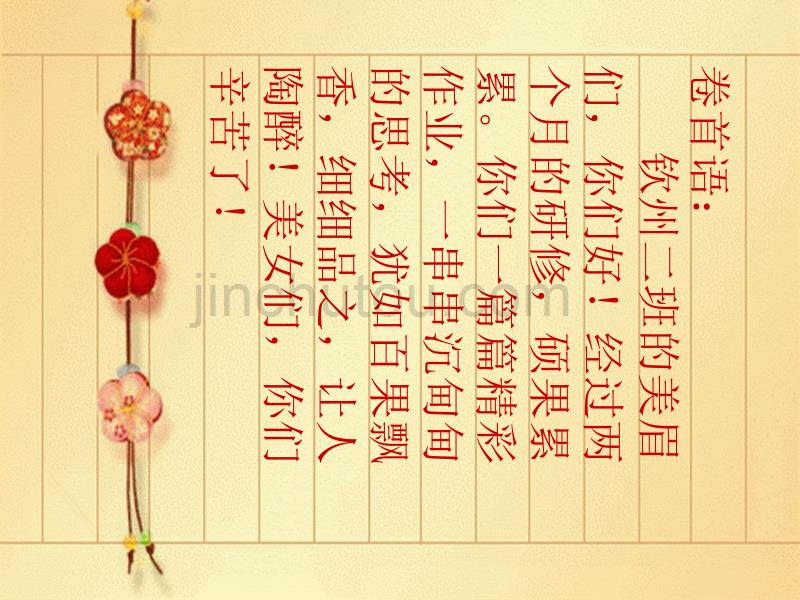 卷首语：
钦州二班的美眉
们，你们好！经过两
个月的研修，硕果累
累。你们一篇篇精彩
作业，一串串沉甸甸
的思考，犹如百果飘
香，细细品之，让人
陶醉！美女们，你们
辛苦了！
jinchutou.com